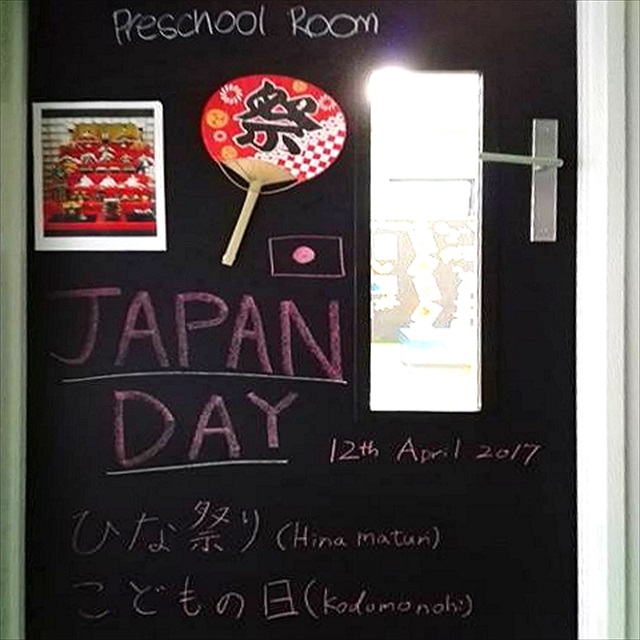 Preschool Room
祭
JAPAN
DAY
12th April 2017
ひな祭り(Hina maturi)
こどもの日(Kodomonohi)